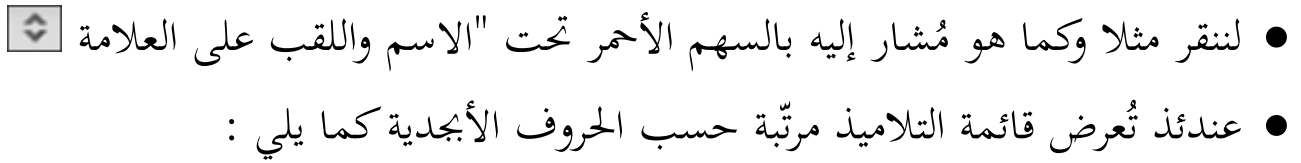 ● لننقر مثلا وكما هو مُشار إليه بالسهم الأحمر تحت "الاسم واللقب على العلامة
● عندئذ تُعرض قائمة التلاميذ مرتّبة حسب الحروف الأبجدية كما يلي :